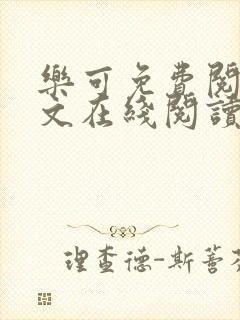 樂可免費閱
文在綫閱讀
理查德-斯蒈